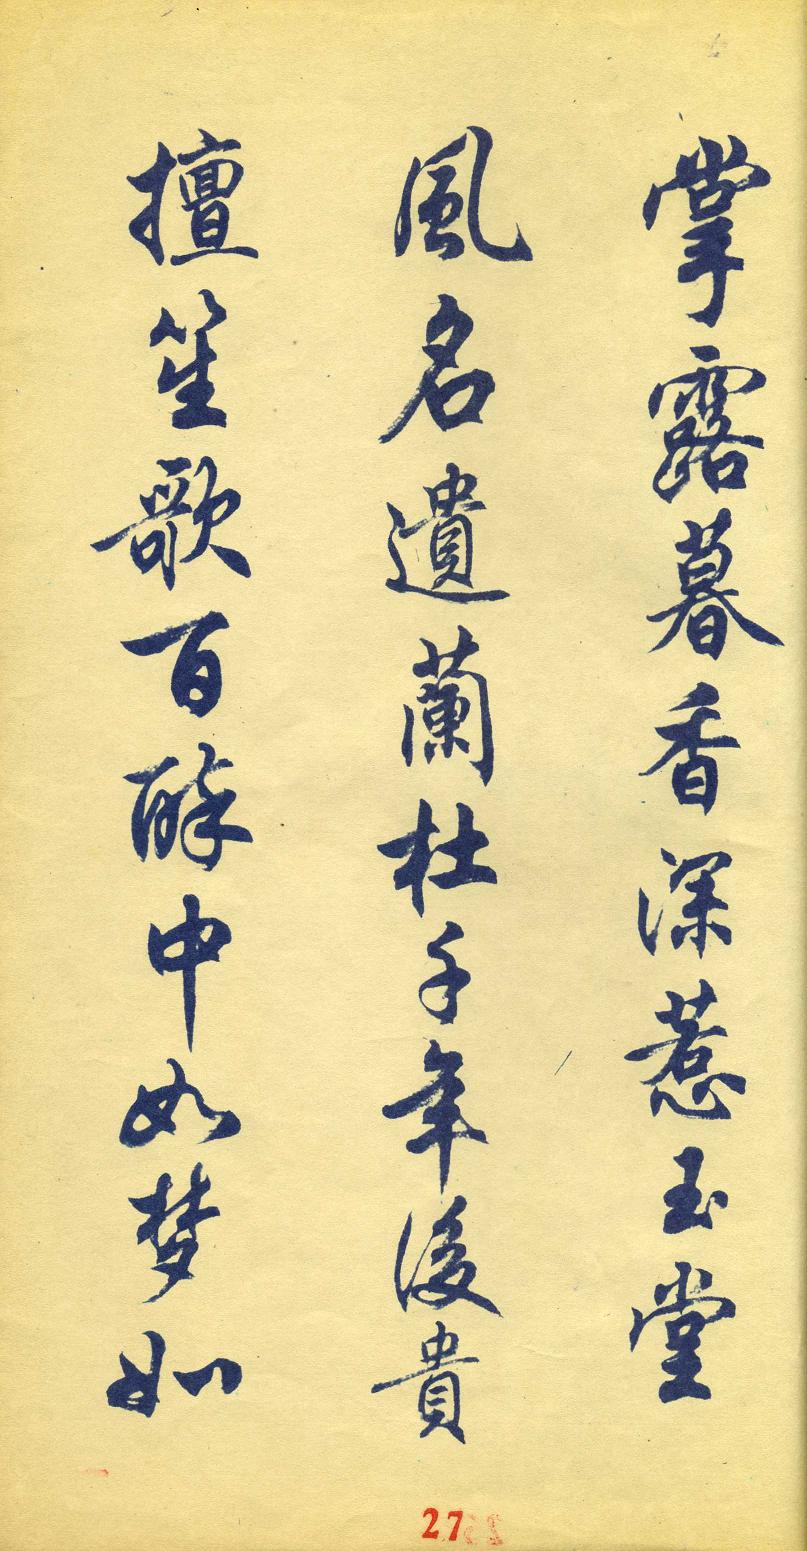 掌露暮香深惹玉堂
風名遺蘭杜千年後貴
擅笙歌百醉中如梦如
27